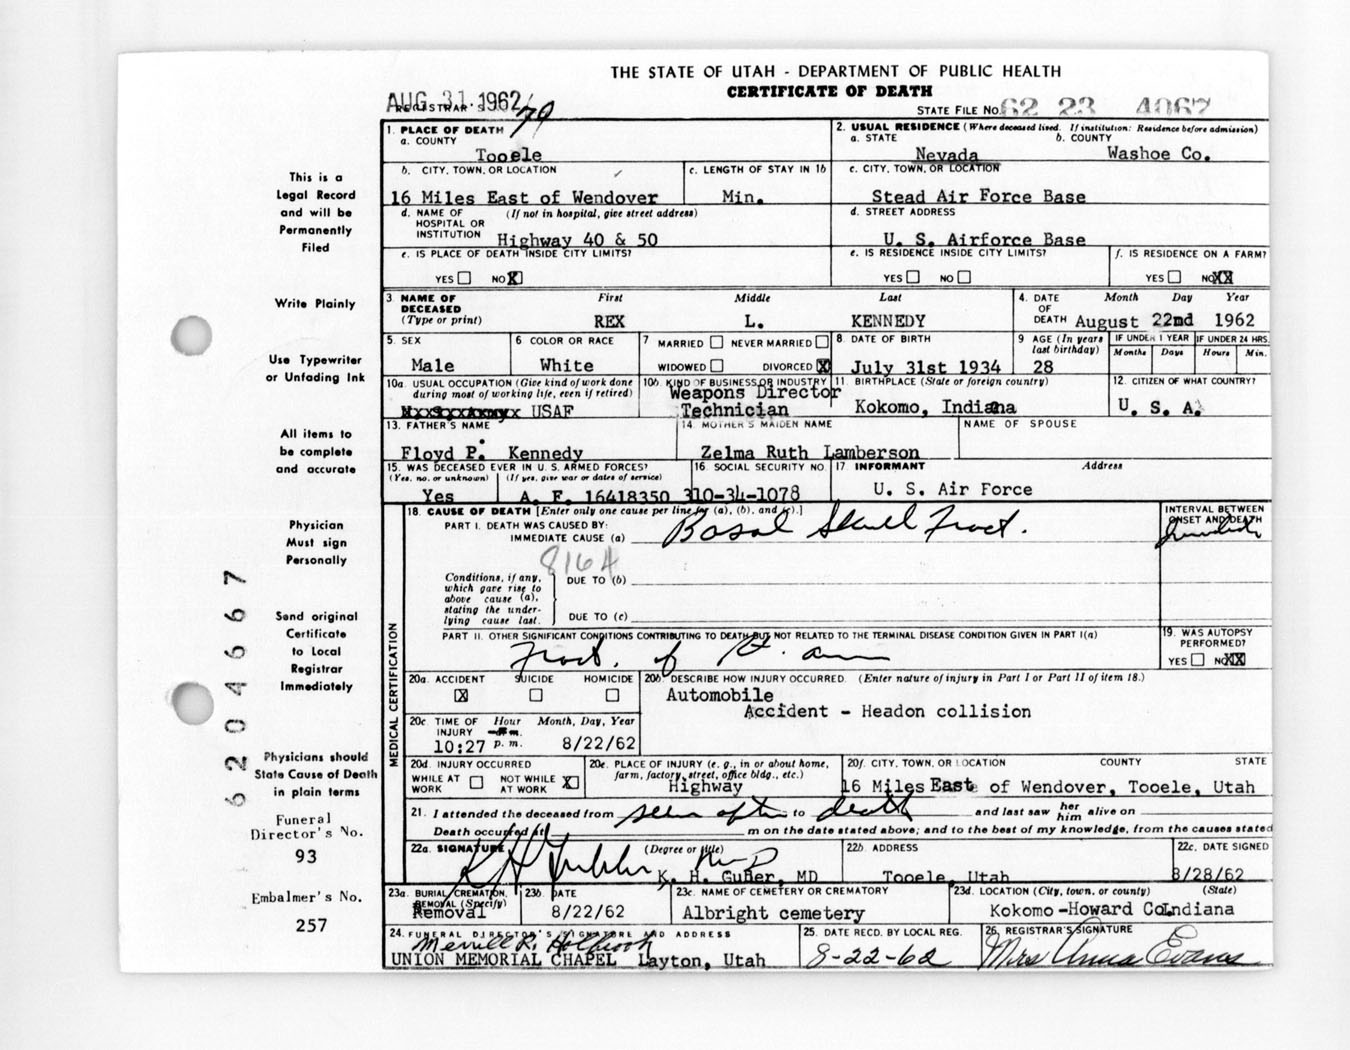 THE STATE OF UTAH - DEPARTMENT OF PUBLIC HEALTH
CERTIFICATE OF DEATH
AUG 31 1962
REGISTRAR'S 79
STATE FILE No. 62 23 4067
1. PLACE OF DEATH
a. COUNTY
Tooele
2. USUAL RESIDENCE (Where deceased lived. If institution: Residence before admission)
a. STATE b. COUNTY
Nevada Washoe Co.
b. CITY, TOWN, OR LOCATION
16 Miles East of Wendover
c. LENGTH OF STAY IN 1b
Min.
c. CITY, TOWN, OR LOCATION
Stead Air Force Base
d. NAME OF (If not in hospital, give street address)
HOSPITAL OR
INSTITUTION Highway 40 & 50
d. STREET ADDRESS
U. S. Airforce Base
e. IS PLACE OF DEATH INSIDE CITY LIMITS?
YES NO X
e. IS RESIDENCE INSIDE CITY LIMITS?
YES NO
f. IS RESIDENCE ON A FARM?
YES NO XX
3 NAME OF First Middle Last
DECEASED
(Type or print) REX L. KENNEDY
4. DATE Month Day Year
OF
DEATH August 22nd 1962
5. SEX
Male
6 COLOR OR RACE
White
7 MARRIED NEVER MARRIED
WIDOWED DIVORCED X
8. DATE OF BIRTH
July 31st 1934
9 AGE (In years
last birthday)
28
IF UNDER 1 YEAR IF UNDER 24 HRS.
Months Days Hours Min.
10a. USUAL OCCUPATION (Give kind of work done
during most of working life, even if retired)
USAF
10b. KIND OF BUSINESS OR INDUSTRY
Weapons Director
Technician
11. BIRTHPLACE (State or foreign country)
Kokomo, Indiana
12. CITIZEN OF WHAT COUNTRY?
U. S. A.
13. FATHER'S NAME
Floyd P. Kennedy
14. MOTHER'S MAIDEN NAME
Zelma Ruth Lamberson
NAME OF SPOUSE
15. WAS DECEASED EVER IN U. S. ARMED FORCES?
(Yes, no, or unknown) (If yes, give war or dates of service)
Yes A. F. 16418350
16. SOCIAL SECURITY NO.
310-34-1078
17. INFORMANT Address
U. S. Air Force
MEDICAL CERTIFICATION
18. CAUSE OF DEATH [Enter only one cause per line for (a), (b), and (c).]
PART I. DEATH WAS CAUSED BY:
IMMEDIATE CAUSE (a) Basal Skull Fract.
INTERVAL BETWEEN
ONSET AND DEATH
8164
Conditions, if any,
which gave rise to
above cause (a),
stating the under-
lying cause last.
DUE TO (b)
DUE TO (c)
PART II. OTHER SIGNIFICANT CONDITIONS CONTRIBUTING TO DEATH BUT NOT RELATED TO THE TERMINAL DISEASE CONDITION GIVEN IN PART I(a)
Fract. of Rt. arm
19. WAS AUTOPSY
PERFORMED?
YES NO XX
20a. ACCIDENT SUICIDE HOMICIDE
X
20b. DESCRIBE HOW INJURY OCCURRED. (Enter nature of injury in Part I or Part II of item 18.)
Automobile
Accident - Headon collision
20c. TIME OF Hour Month, Day, Year
INJURY
10:27 p. m. 8/22/62
20d. INJURY OCCURRED
WHILE AT NOT WHILE X
WORK AT WORK
20e. PLACE OF INJURY (e. g., in or about home,
farm, factory, street, office bldg., etc.)
Highway
20f. CITY, TOWN, OR LOCATION COUNTY STATE
16 Miles East of Wendover, Tooele, Utah
21. I attended the deceased from seen after to death and last saw her him alive on
Death occurred at m on the date stated above; and to the best of my knowledge, from the causes stated
22a. SIGNATURE (Degree or title)
K. H. Gubler, MD
22b. ADDRESS
Tooele, Utah
22c. DATE SIGNED
8/28/62
23a. BURIAL, CREMATION,
REMOVAL (Specify)
Removal
23b. DATE
8/22/62
23c. NAME OF CEMETERY OR CREMATORY
Albright cemetery
23d. LOCATION (City, town, or county) (State)
Kokomo-Howard Co. Indiana
24. FUNERAL DIRECTOR'S SIGNATURE AND ADDRESS
Merrill R. Holbrook
UNION MEMORIAL CHAPEL Layton, Utah
25. DATE RECD. BY LOCAL REG.
8-22-62
26. REGISTRAR'S SIGNATURE
Mrs Anna Evans
This is a
Legal Record
and will be
Permanently
Filed
Write Plainly
Use Typewriter
or Unfading Ink
All items to
be complete
and accurate
Physician
Must sign
Personally
Send original
Certificate
to Local
Registrar
Immediately
Physicians should
State Cause of Death
in plain terms
Funeral
Director's No.
93
Embalmer's No.
257
6204667